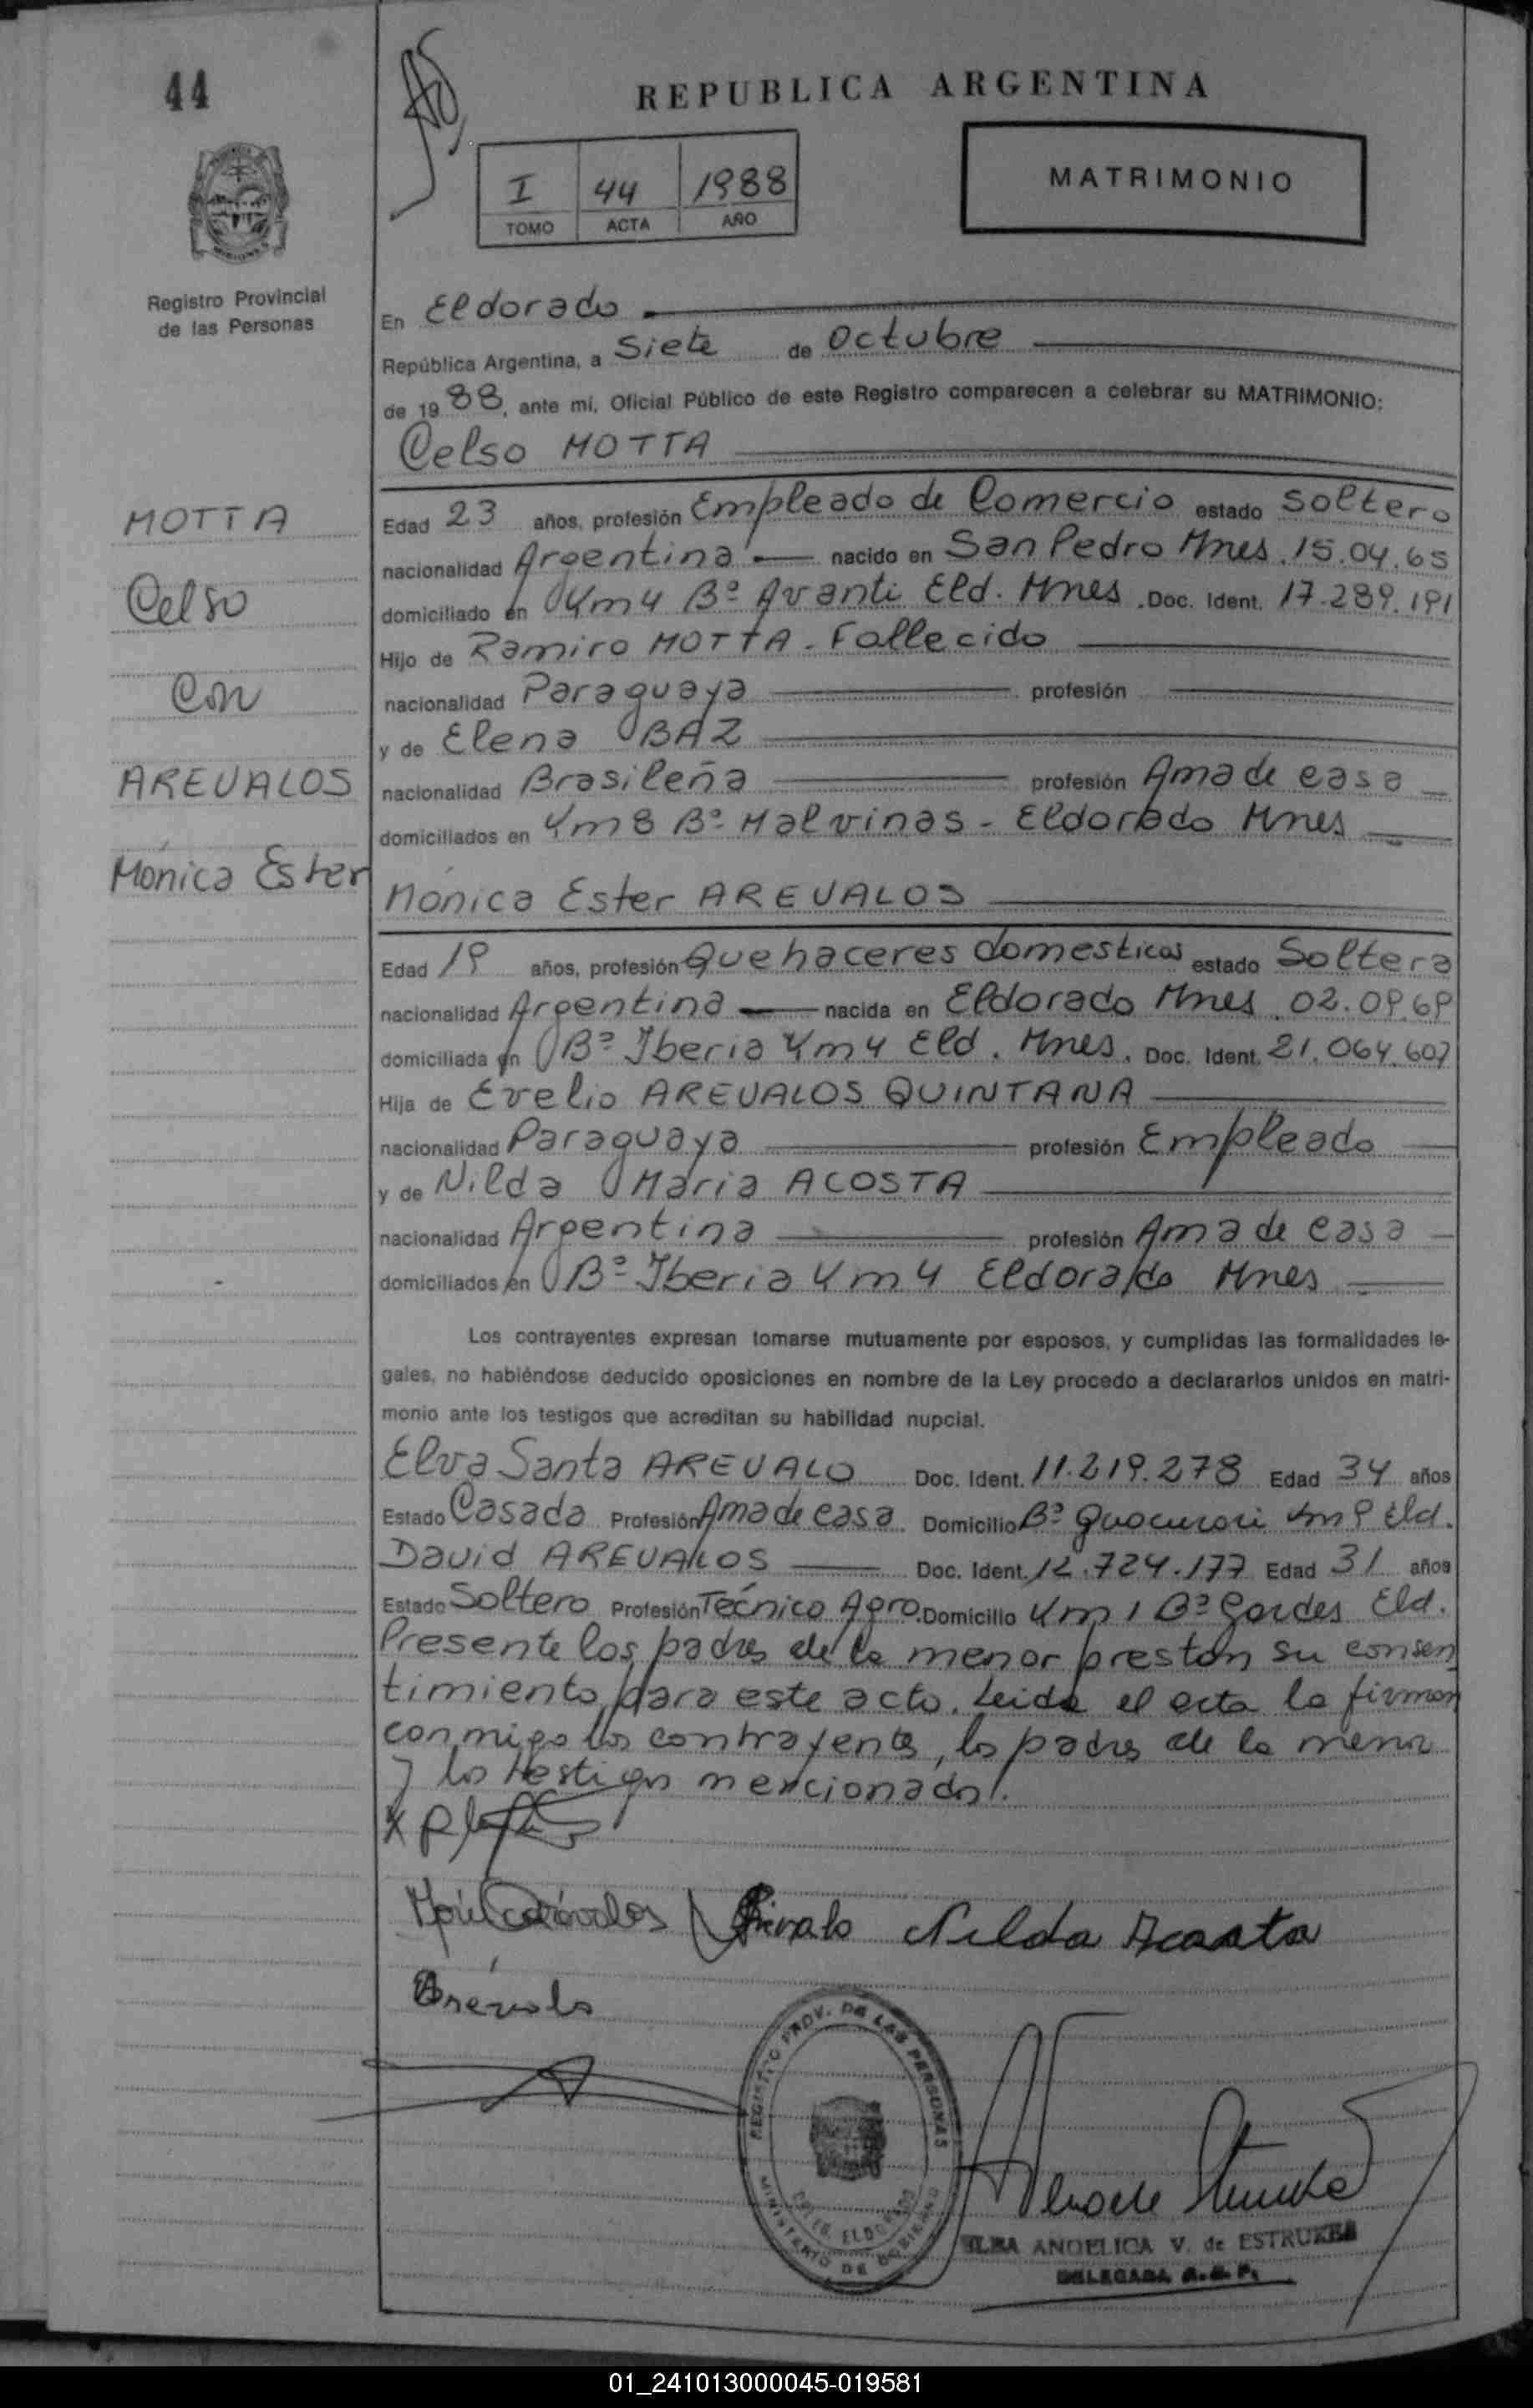 44
REPUBLICA ARGENTINA
I 44 1988
TOMO ACTA AÑO
MATRIMONIO
Registro Provincial
de las Personas
En Eldorado
República Argentina, a Siete de Octubre
de 1988, ante mi, Oficial Público de este Registro comparecen a celebrar su MATRIMONIO:
Celso MOTTA
MOTTA
Celso
Con
AREVALOS
Mónica Ester
Edad 23 años, profesión Empleado de Comercio estado Soltero
nacionalidad Argentina nacido en San Pedro Mnes. 15.04.65
domiciliado en Km 4 Bº Avanti Eld. Mnes. Doc. Ident. 17.289.191
Hijo de Ramiro MOTTA - Fallecido
nacionalidad Paraguaya profesión
y de Elena BAZ
nacionalidad Brasileña profesión Ama de casa
domiciliados en Km 8 Bº Malvinas - Eldorado Mnes
Mónica Ester AREVALOS
Edad 19 años, profesión Quehaceres domesticos estado Soltera
nacionalidad Argentina nacida en Eldorado Mnes. 02.09.69
domiciliada en Bº Iberia Km 4 Eld. Mnes. Doc. Ident. 21.064.607
Hija de Evelio AREVALOS QUINTANA
nacionalidad Paraguaya profesión Empleado
y de Nilda Maria ACOSTA
nacionalidad Argentina profesión Ama de casa
domiciliados en Bº Iberia Km 4 Eldorado Mnes
Los contrayentes expresan tomarse mutuamente por esposos, y cumplidas las formalidades le-
gales, no habiéndose deducido oposiciones en nombre de la Ley procedo a declararlos unidos en matri-
monio ante los testigos que acreditan su habilidad nupcial.
Elva Santa AREVALO Doc. Ident. 11.219.278 Edad 34 años
Estado Casada Profesión Ama de casa Domicilio Bº Km 9 Eld.
David AREVALOS Doc. Ident. 12.724.177 Edad 31 años
Estado Soltero Profesión Técnico Agro. Domicilio Km 1 Bº Eld.
Presente los padres de la menor prestan su consen
timiento para este acto. Leida el acta la firman
conmigo los contrayentes, los padres de la menor
y los testigos mencionados.
Nilda Acosta
Arévalo
REGISTRO PROV. DE LAS PERSONAS
MINISTERIO DE GOBIERNO
ELDORADO
ELBA ANGELICA V. de ESTRUKEL
DELEGADA R. P.
01_241013000045-019581